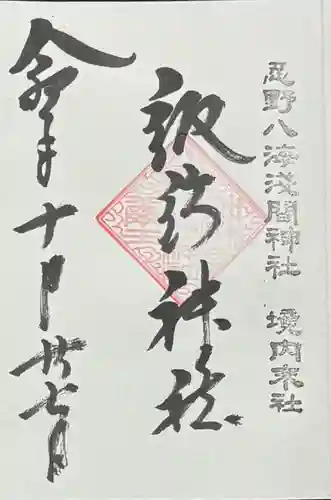 忍野八海浅間神社 境内末社
諏訪神社
令和 年 十月廿七日